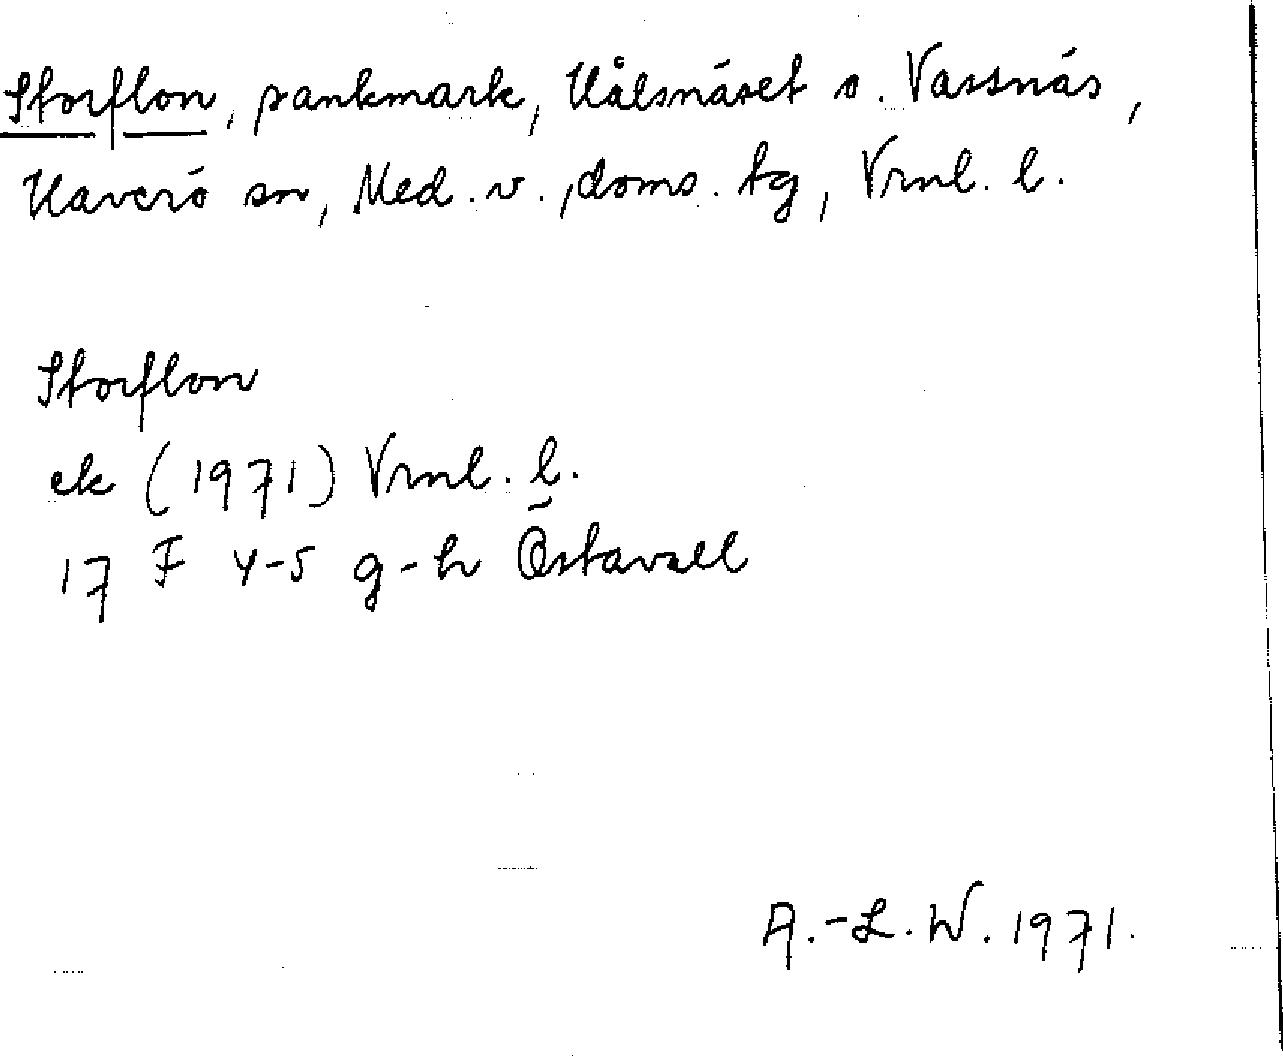 Storflon, sankmark, Kålsnäset s. Vassnäs,
Haverö sn, Med. v., doms. tg, Vrnl. l.
Storflon
ek (1971) Vrnl. l.
17 F 4-5 g-h Östavall
A.-L. W. 1971.